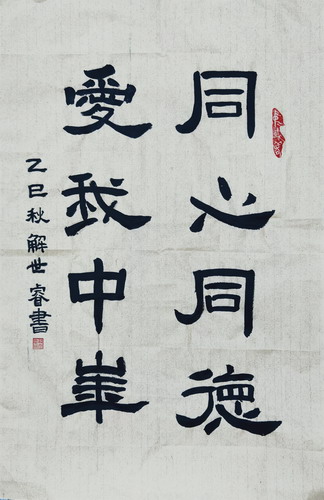 同心同德
愛我中華
乙巳秋解世睿書